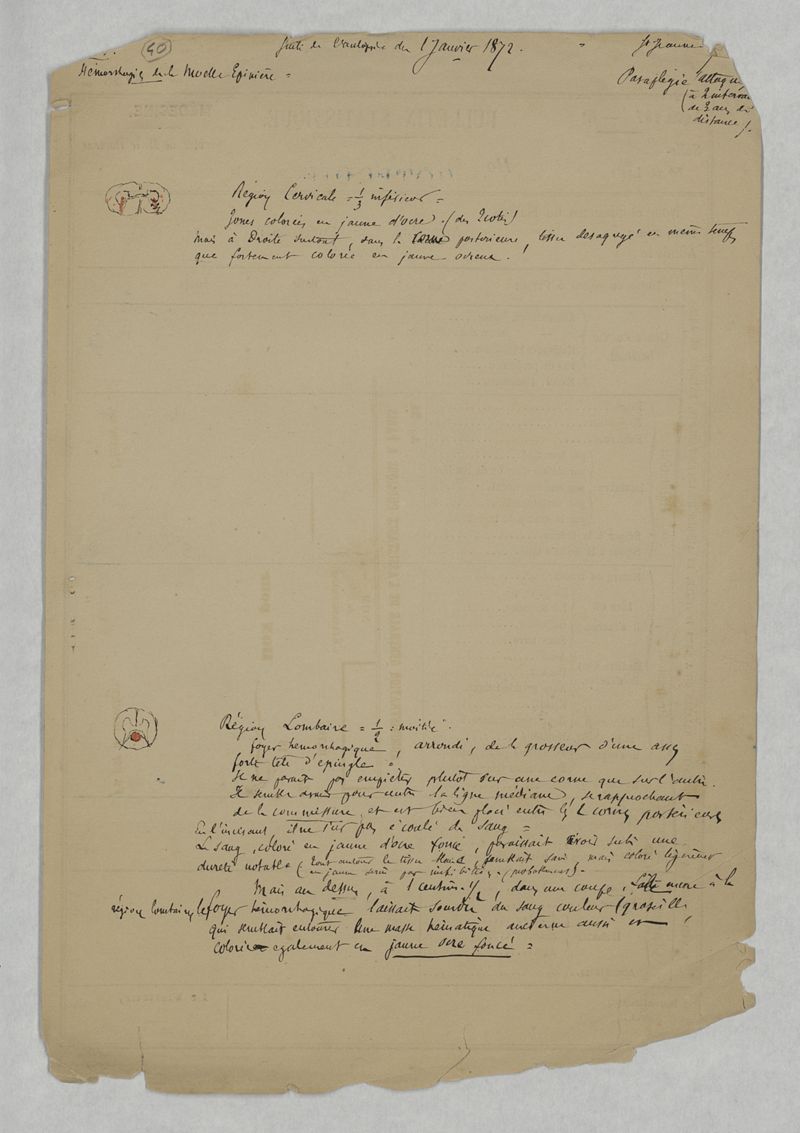 40
Suite de l'autopsie du 1 Janvier 1872.
St Jeanne
Hémorrhagie de la Moelle Epinière =
Paraplégie attaque
(à 2 interva
de 3 ans de
distance).
Région Cervicale = 1/3 inférieur =
Zones colorées en jaune d'ocre. (des 2 cotés)
mais à Droite surtout, dans la corne postérieure, tissu désagregé en même temps
que fortement coloré en jaune ocreux.
Région Lombaire = 1/2 : moitié.
foyer hémorrhagique, arrondi, de la grosseur d'une assez
forte tete d'épingle =
Il ne parait pas empiéter plutot sur une corne que sur l'autre.
Il semble avoir pour centre la ligne médiane, se rapprochant
de la commissure et est bien placé entre les 2 cornes postérieures
En l'incisant, il ne s'est pas écoulé de sang =
Le sang, coloré en jaune d'ocre foncé, paraissait avoir subi une
dureté notable (tout autour le tissu blanc semblait sain, mais coloré légèrement
en jaune serin par imbibition, (probablement) =
Mais au dessus, à 1 centim. 1/2, dans une coupe, faite encore à la
région lombaire le foyer hémorrhagique laissait sourdre du sang couleur (groseille
qui semblait entourer une masse hématique ancienne aussi et
colorée également en jaune ocre foncé =